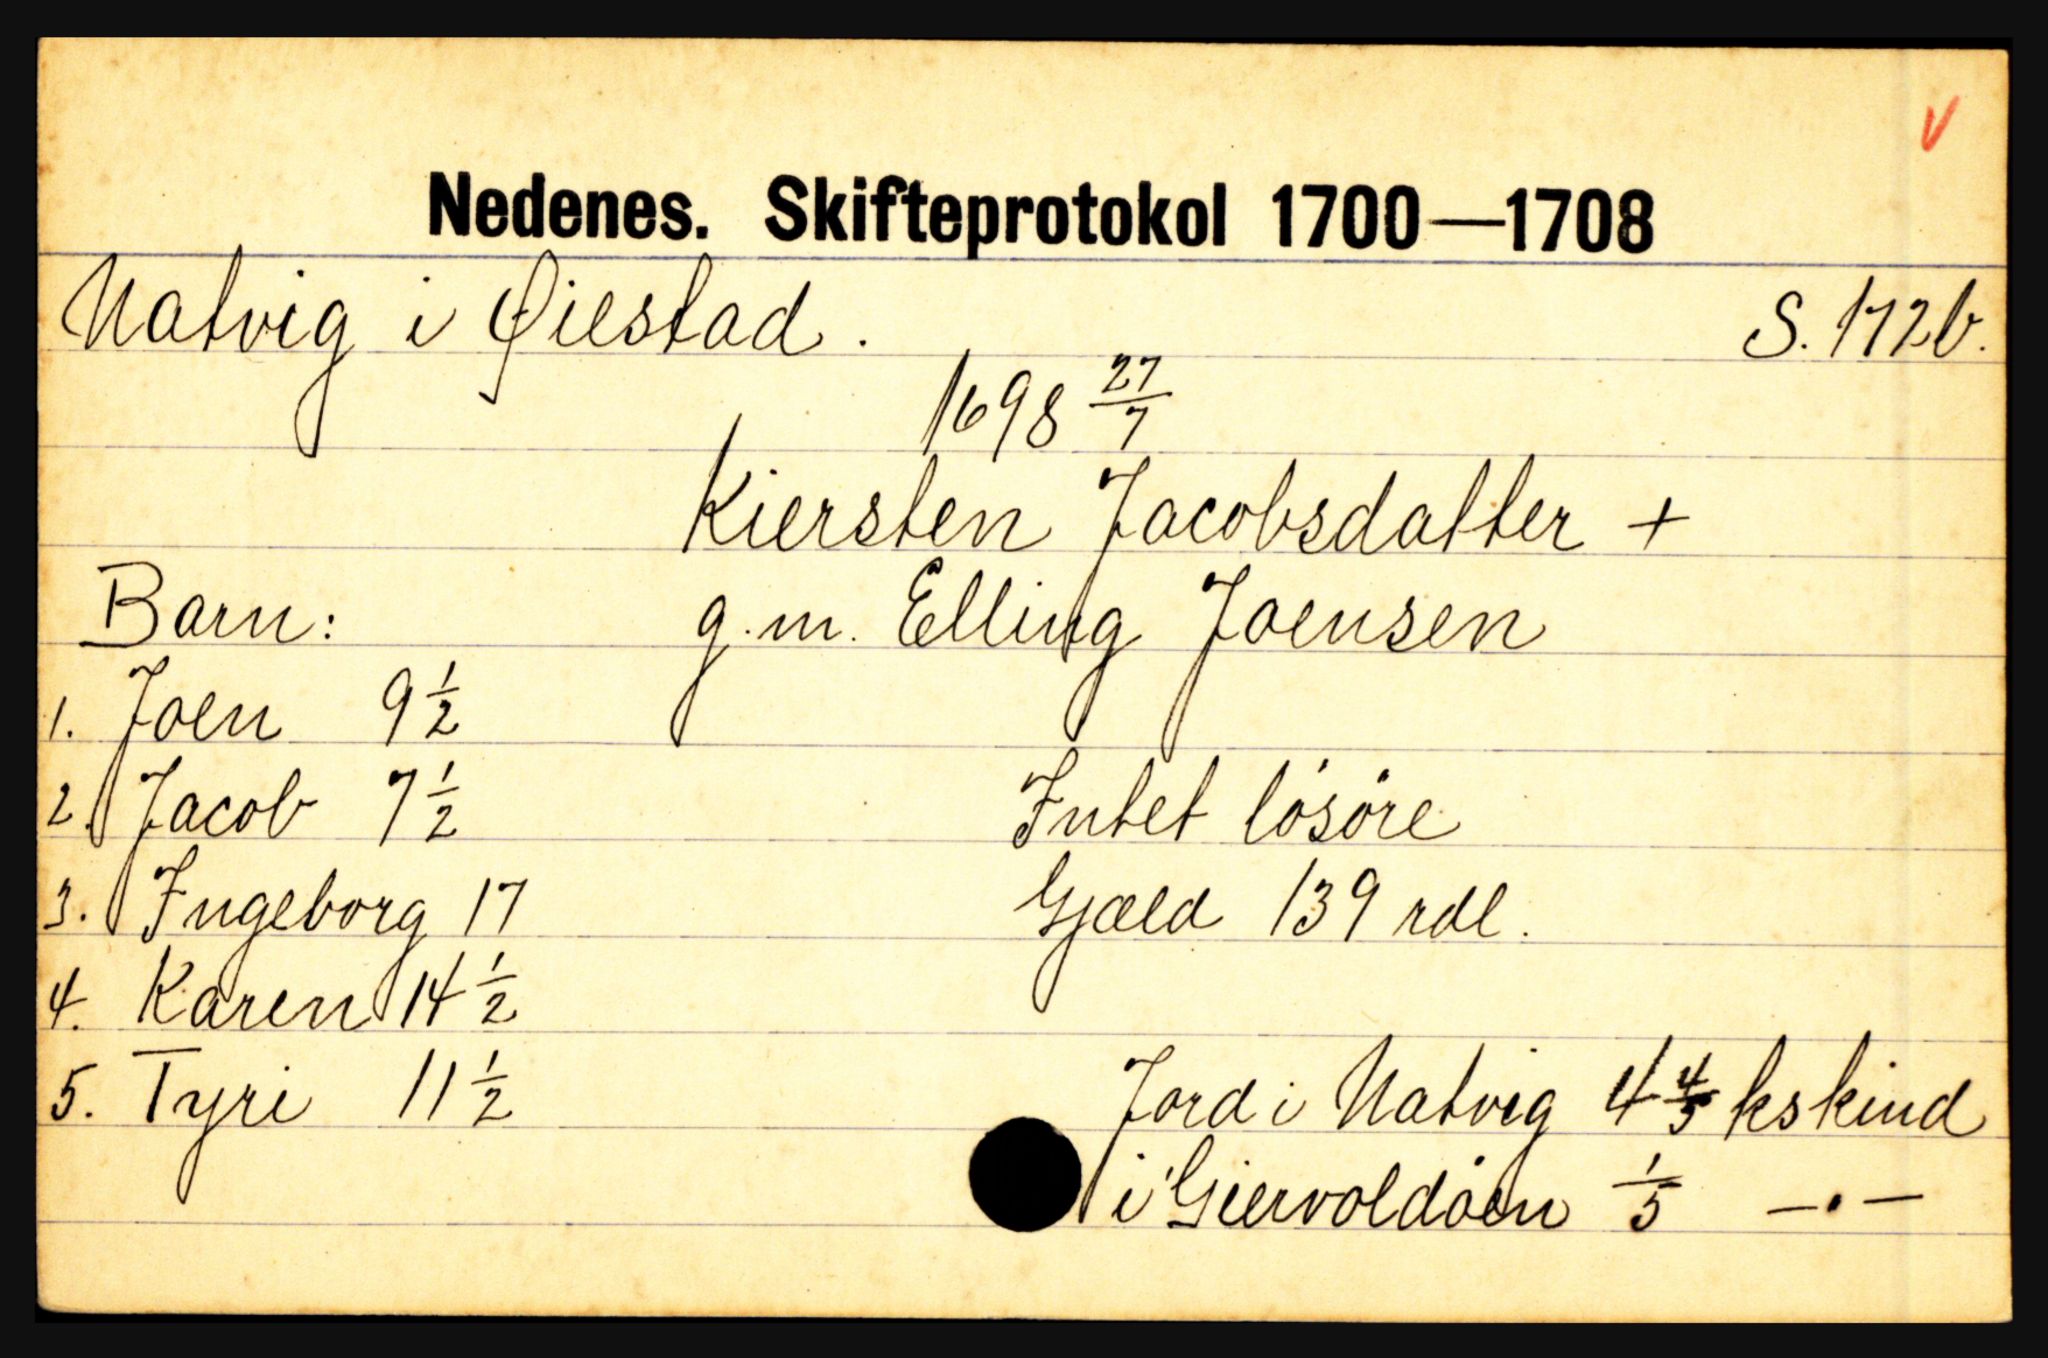 V
Nedenes. Skifteprotokol 1700—1708
Natvig i Øiestad. S. 172b.
1698 27/7
Kiersten Jacobsdatter +
g.m. Elling Joensen
Barn:
1. Joen 9 1/2
2. Jacob 7 1/2
3. Ingeborg 17
4. Karen 14 1/2
5. Tyri 11 1/2
Intet lösöre
Gjæld 139 rdl.
Jord i Natvig 4 4/5 kskind
i Giervoldöen 1/5 —•—